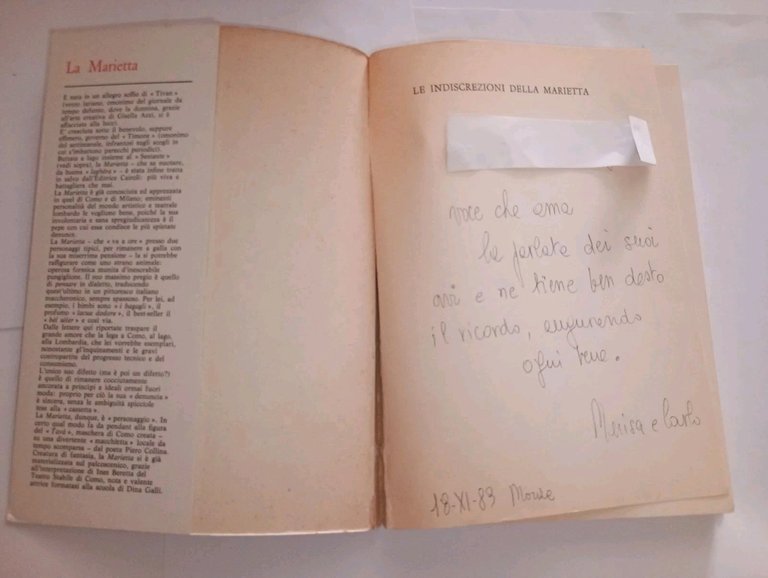 La Marietta
E nata in un allegro soffio di « Tivan »
(vento lariano, omonimo del giornale da
tempo defunto, dove la donnina, grazie
all'arte creativa di Gisella Azzi, si è
affacciata alla luce).
E' cresciuta sotto il benevolo, seppure
effimero, governo del « Timone » (omonimo
del settimanale, infrantosi sugli scogli in
cui s'imbattono parecchi periodici).
Buttata a lago insieme al « Sestante »
(vedi sopra), la Marietta - che sa nuotare,
da buona « laghéra » - è stata infine tratta
in salvo dall'Editrice Cairoli: più viva e
battagliera che mai.
La Marietta è già conosciuta ed apprezzata
in quel di Como e di Milano; eminenti
personalità del mondo artistico e teatrale
lombardo le vogliono bene, poiché la sua
involontaria e sana spregiudicatezza è il
pepe con cui essa condisce le più spietate
denunce.
La Marietta - che « va a ore » presso due
personaggi tipici, per rimanere a galla con
la sua miserrima pensione - la si potrebbe
raffigurare come uno strano animale:
operosa formica munita d'inesorabile
pungiglione. Il suo massimo pregio è quello
di pensare in dialetto, traducendo
quest'ultimo in un pittoresco italiano
maccheronico, sempre spassoso. Per lei, ad
esempio, i bimbi sono « i bagagli », il
profumo « l'acqua », il best-seller il
« bél siler » e così via.
Dalle lettere qui riportate traspare il
grande amore che la lega a Como, al lago,
alla Lombardia, che lei vorrebbe esemplari,
nonostante gl'inquinamenti e le gravi
contropartite del progresso tecnico e del
consumismo.
L'unico suo difetto (ma è poi un difetto?)
è quello di rimanere cocciutamente
ancorata a principi e ideali ormai fuori
moda: proprio per ciò la sua « denuncia »
è sincera, senza le ambiguità spicciole
tese alla « cassetta ».
La Marietta, dunque, è « personaggio ». In
certo qual modo fa da pendant alla figura
del « Tavà », maschera di Como creata -
su una divertente « macchietta » locale da
tempo scomparsa - dal poeta Piero Collina.
Creatura di fantasia, la Marietta si è già
materializzata sul palcoscenico, grazie
all'interpretazione di Ines Beretta del
Teatro Stabile di Como, nota e valente
attrice formatasi alla scuola di Dina Galli.
LE INDISCREZIONI DELLA MARIETTA
voce che ama
la parlata dei suoi
avi e ne tiene ben desto
il ricordo, augurando
ogni bene.
Marisa e Carlo
18-XI-83